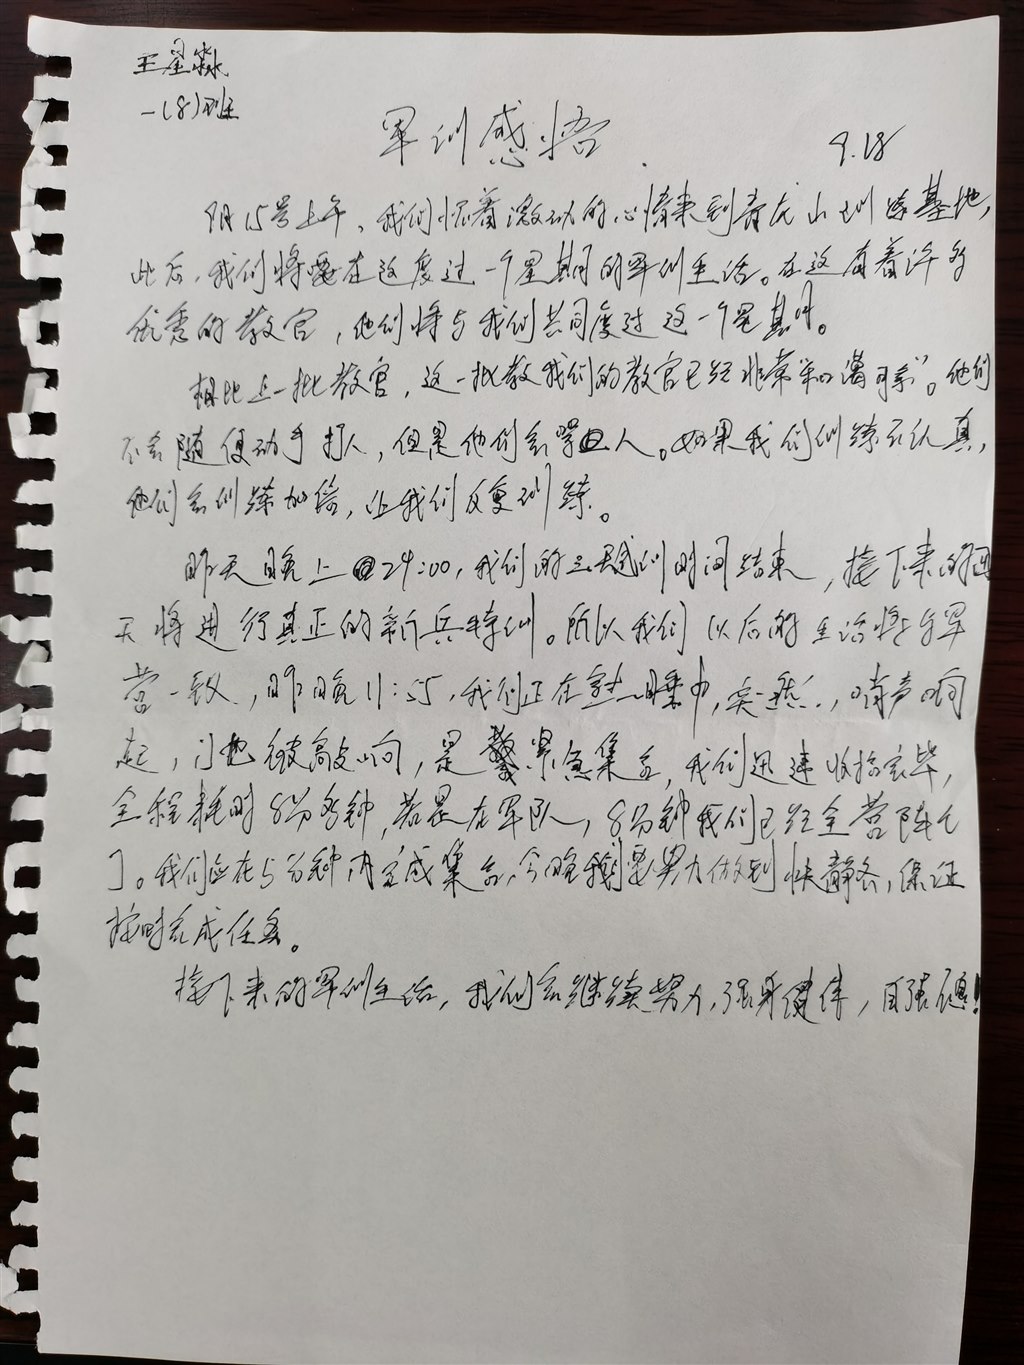 王星淼
一(8)班
军训感悟
9.18
9月15号上午，我们怀着激动的心情来到青龙山训练基地，
此后，我们将要在这度过一个星期的军训生活。在这有着许多
优秀的教官，他们将与我们共同度过这一个星期。
相比上一批教官，这一批教我们的教官已经非常“和蔼可亲”。他们
不会随便动手打人，但是他们会骂人。如果我们训练不认真，
他们会训练加倍，让我们反复训练。
昨天晚上24:00，我们的三天试训时间结束，接下来的四
天将进行真正的新兵特训。所以我们以后的生活将与军
营一致，昨晚11:55，我们正在熟睡中，突然，哨声响
起，门也被敲响，是紧急集合，我们迅速收拾完毕，
全程耗时8分多钟，若是在军队，8分钟我们已经全营阵亡
了。我们应在5分钟内完成集合，今晚我们要努力做到快静齐，保证
按时完成任务。
接下来的军训生活，我们会继续努力，强身健体，自强不息！